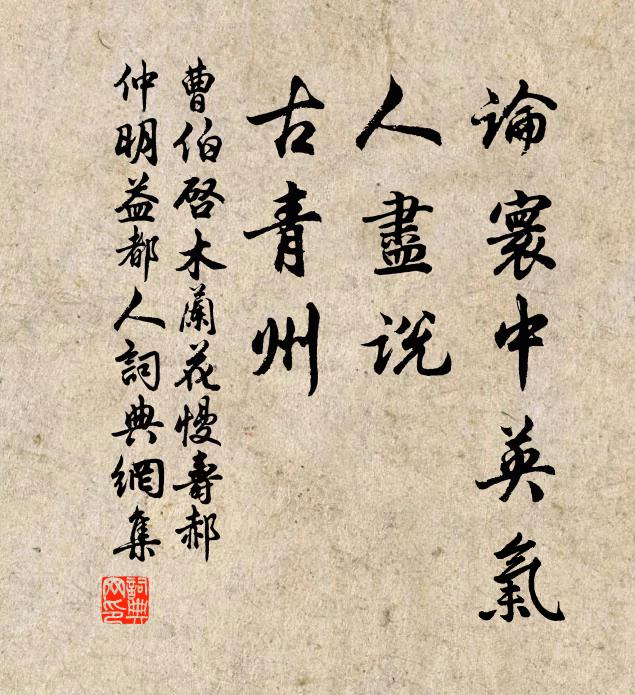 論寰中英氣
人盡說
古青州
曹伯啓木蘭花慢壽郝
仲明益都人詞典網集
詞典
网印